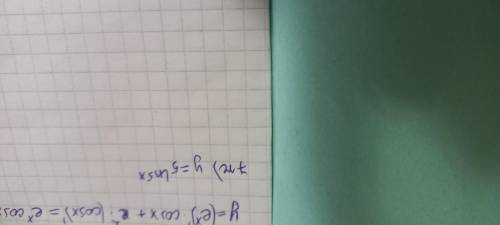 y=(eˣ)'·cosx + eˣ·(cosx)' = eˣcos
7ж) y=5ln5x